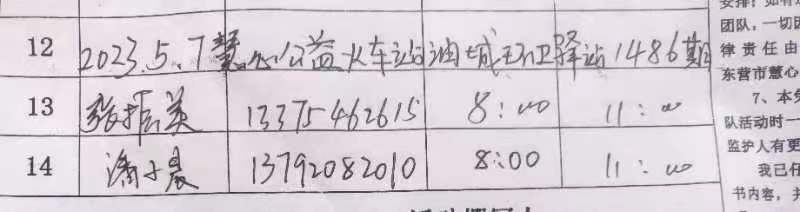 12 2023.5.7慧心公益火车站油城环卫驿站1486期
13 张振英 13375462615 8:00 11:00
14 潘小晨 13792082010 8:00 11:00
团队，一切
律责任由
东营市慧心
7、本
队活动时一
监护人有更
我已
书内容，